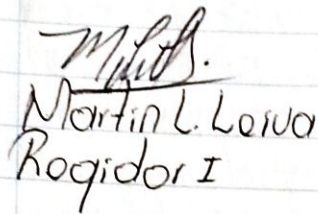 Martin L. Leiva
Regidor I